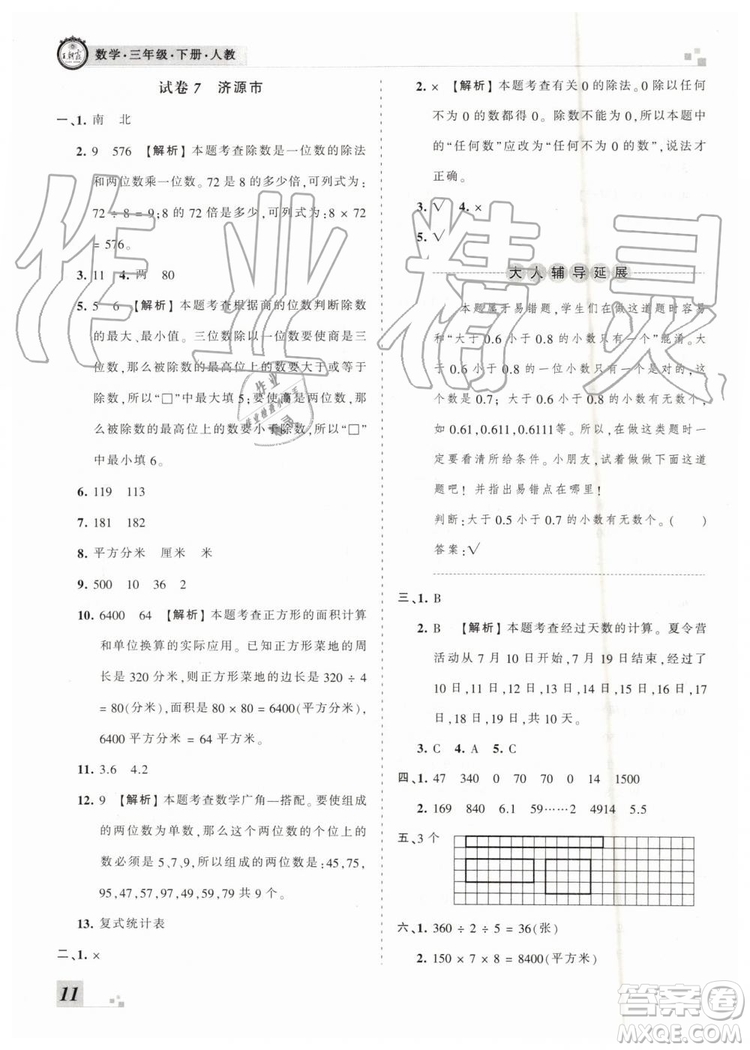 王朝霞
数学·三年级·下册·人教
试卷7 济源市
一、1. 南 北
2. 9 576 【解析】本题考查除数是一位数的除法
和两位数乘一位数。72是8的多少倍,可列式为:
72÷8=9;8的72倍是多少,可列式为:8×72
=576。
3. 11 4. 两 80
5. 5 6 【解析】本题考查根据商的位数判断除数
的最大、最小值。三位数除以一位数要使商是三
位数,那么被除数的最高位上的数要大于或等于
除数,所以“□”中最大填5;要使商是两位数,那
么被除数的最高位上的数要小于除数,所以“□”
中最小填6。
6. 119 113
7. 181 182
8. 平方分米 厘米 米
9. 500 10 36 2
10. 6400 64 【解析】本题考查正方形的面积计算
和单位换算的实际应用。已知正方形菜地的周
长是320分米,则正方形菜地的边长是320÷4
=80(分米),面积是80×80=6400(平方分米),
6400平方分米=64平方米。
11. 3.6 4.2
12. 9 【解析】本题考查数学广角—搭配。要使组成
的两位数为单数,则组成的两位数的个位上的
数必须是5、7、9,所以组成的两位数有:45,75,
95,47,57,97,49,59,79,共9个。
13. 复式统计表
二、1. ×
2. × 【解析】本题考查有关0的除法。0除以任何
不为0的数都得0。除数不能为0,所以本题中
的“任何数”应改为“任何不为0的数”,说法才
正确。
3. √ 4. ×
5. √
大人辅导延展
本题属于易错题,学生们在做这道题时容易
和“大于0.6小于0.8的一位小数有1个”混淆。大
于0.6小于0.8的一位小数只有一个,是0.7,但
大于0.6小于0.8的小数有无数个。例如:
0.61,0.611,0.6111等。所以在做题的时候一
定要看清所给的条件。小朋友,试着做做下面这道
题吧!并找出易错点在哪里。
判断:大于0.5小于0.8的小数有无数个。( )
答案:√
三、1. B
2. B 【解析】本题考查经过天数的计算。夏令营
活动从7月10日开始,到7月19日结束,经过了
10日,11日,12日,13日,14日,15日,16日,17
日,18日,19日,共10天。
3. C 4. A 5. C
四、1. 47 340 0 70 14 1500
2. 169 840 6.1 59……2 4914 5.5
五、3个
六、1. 360÷2÷5=36(张)
2. 150×7×8=8400(平方米)
11
作业精灵
答案圈
MXQE.COM